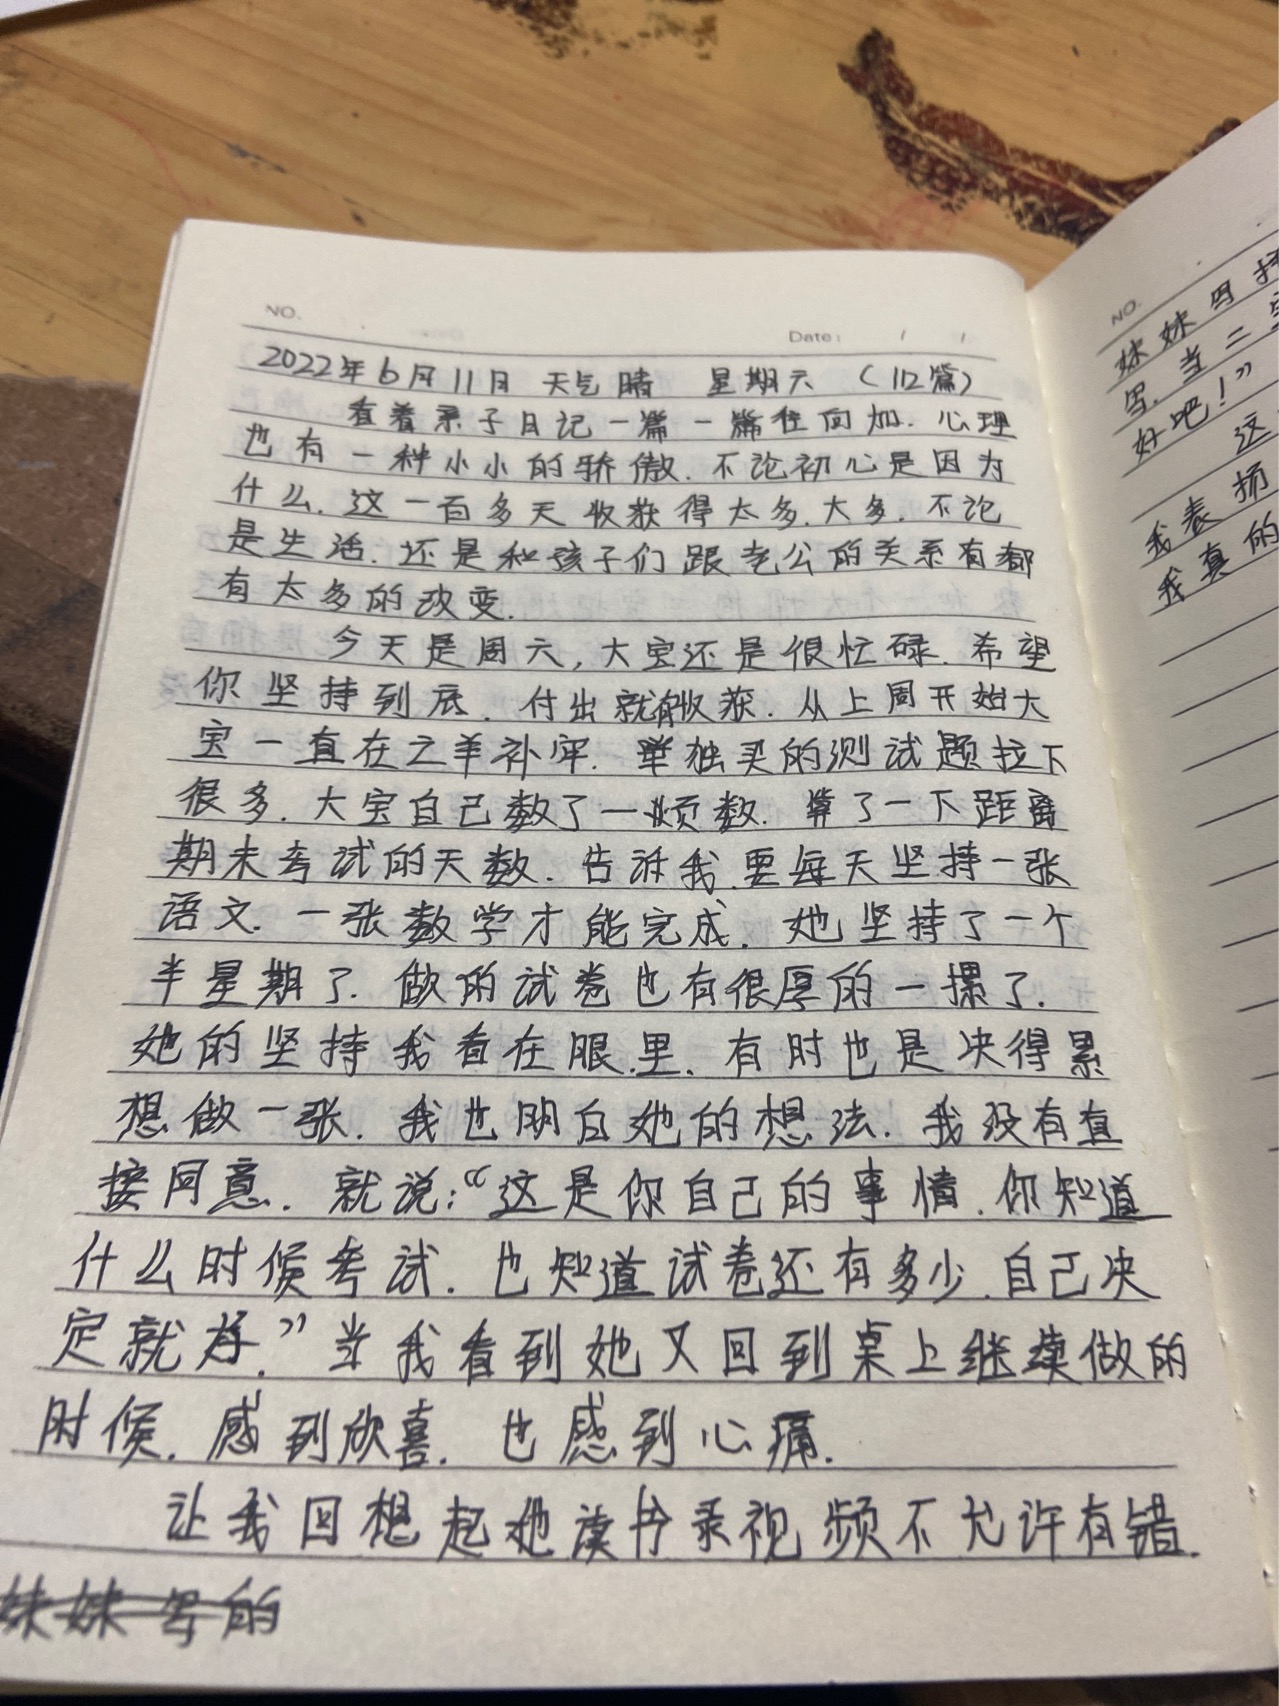 NO.
Date: / /
2022年6月11日 天气晴 星期六 (112篇)
看着亲子日记一篇一篇往向加. 心理
也有一种小小的骄傲. 不论初心是因为
什么. 这一百多天收获得太多. 大多. 不论
是生活. 还是和孩子们跟老公的关系有都
有太多的改变.
今天是周六, 大宝还是很忙碌. 希望
你坚持到底. 付出就有收获. 从上周开始大
宝一直在亡羊补牢. 单独买的测试题拉下
很多. 大宝自己数了一烦数. 算了一下距离
期末考试的天数. 告诉我. 要每天坚持一张
语文. 一张数学才能完成. 她坚持了一个
半星期了. 做的试卷也有很厚的一摞了.
她的坚持我看在眼里. 有时也是决得累
想做一张. 我也明白她的想法. 我没有直
接同意. 就说:“这是你自己的事情. 你知道
什么时候考试. 也知道试卷还有多少. 自己决
定就好.” 当我看到她又回到桌上继续做的
时候. 感到欣喜. 也感到心痛.
让我回想起她读书录视频不允许有错.
妹妹写的
NO.
妹妹写
写. 当二
好吧!”
这
我表扬
我真的